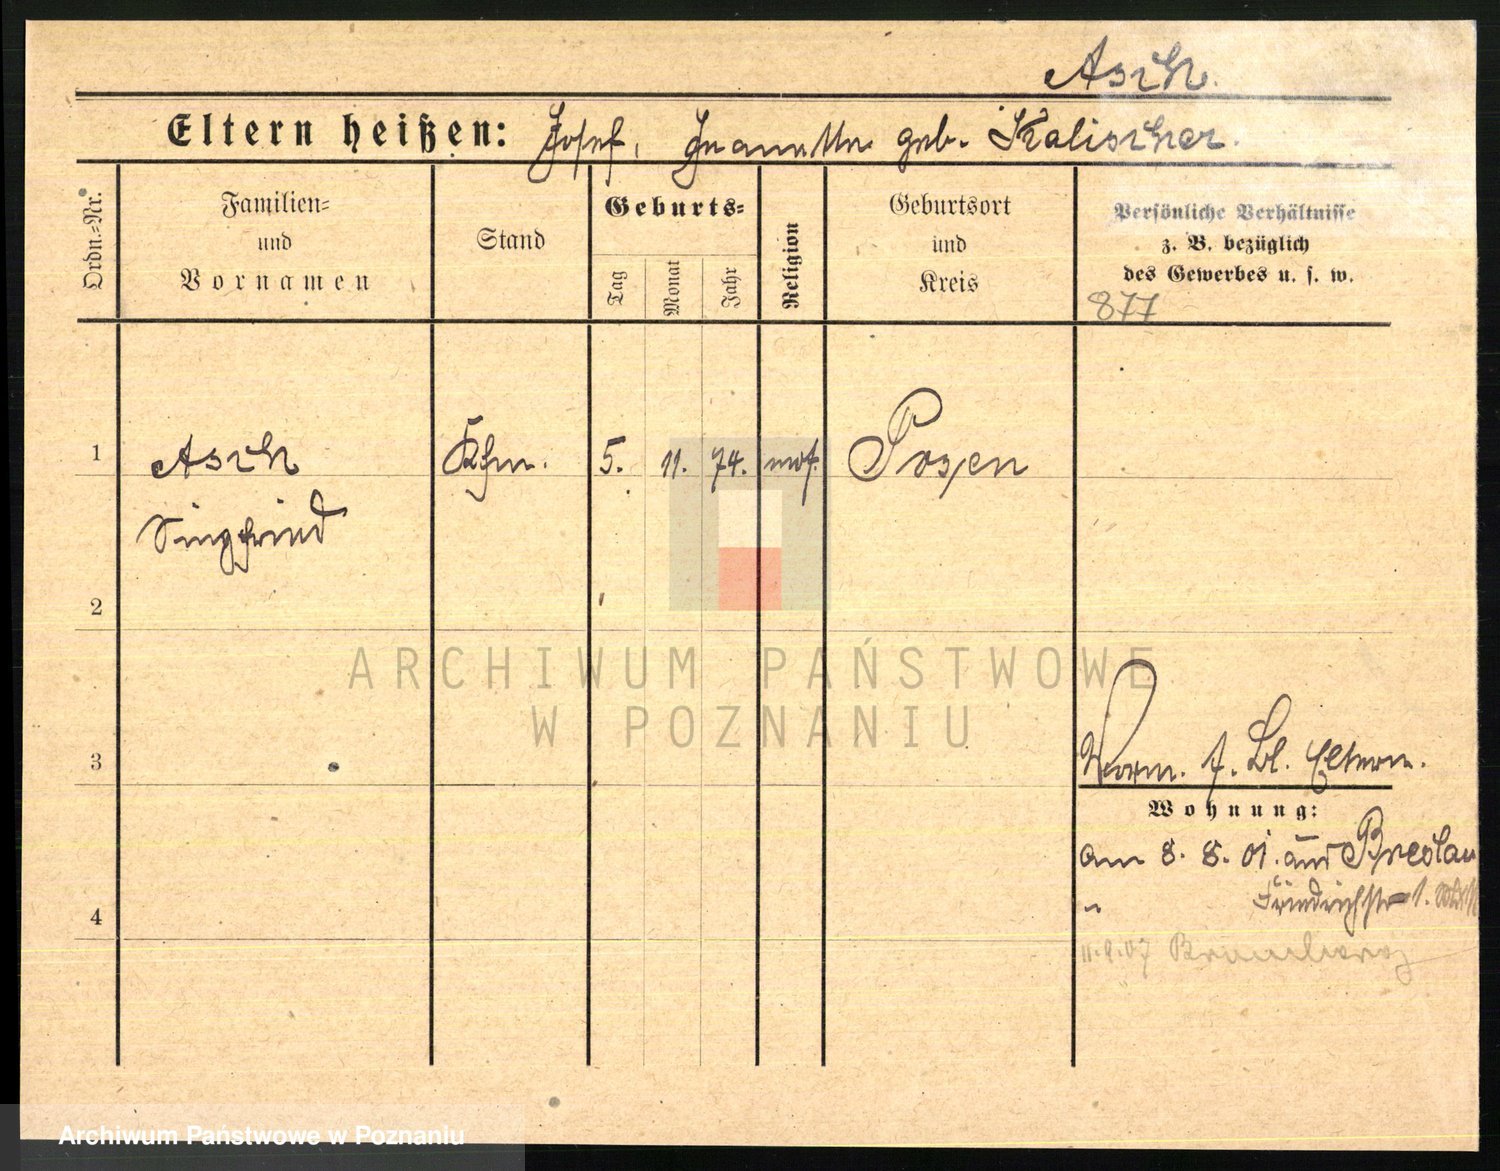 Asch.
Eltern heißen: Josef, Jeanette geb. Kalischer.
Ordn.-Nr.
Familien-
und
Vornamen
Stand
Geburts-
Tag
Monat
Jahr
Religion
Geburtsort
und
Kreis
Persönliche Verhältnisse
z. B. bezüglich
des Gewerbes u. s. w.
877
1 Asch Kfm. 5. 11. 74. mos. Posen
Siegfried
2
ARCHIWUM PAŃSTWOWE
W POZNANIU
3
Vorm. s. Bl. Eltern.
Wohnung:
am 8. 8. 01. aus Breslau
" Friedrichstr 1.
4
11.9.07 Bromberg
Archiwum Państwowe w Poznaniu